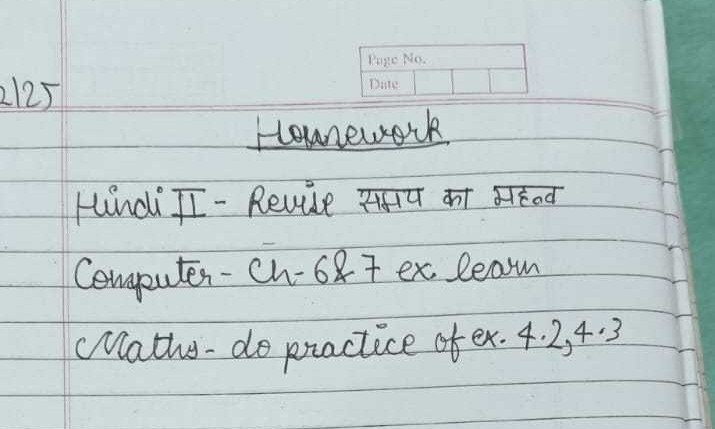 Page No.
Date
2/25
Homework
Hindi II - Revise समय का महत्व
Computer - Ch-6&7 ex. learn
Maths - do practice of ex. 4.2, 4.3